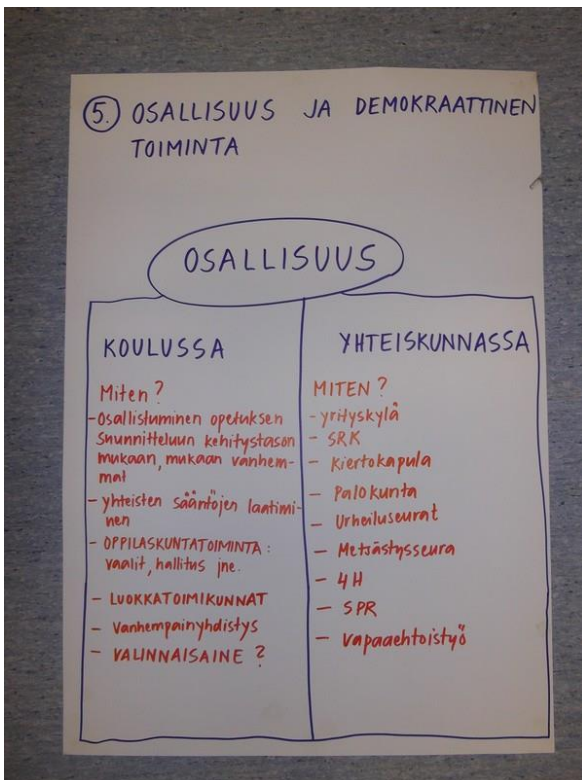 5. OSALLISUUS JA DEMOKRAATTINEN
TOIMINTA
OSALLISUUS
KOULUSSA
Miten?
- Osallistuminen opetuksen
suunnitteluun kehitystason
mukaan, mukaan vanhem-
mat
- yhteisten sääntöjen laatimi-
nen
- OPPILASKUNTATOIMINTA:
vaalit, hallitus jne.
- LUOKKATOIMIKUNNAT
- Vanhempainyhdistys
- VALINNAISAINE?
YHTEISKUNNASSA
MITEN?
- yrityskylä
- SRK
- Kiertokapula
- Palokunta
- Urheiluseurat
- Metsästysseura
- 4H
- SPR
- vapaaehtoistyö